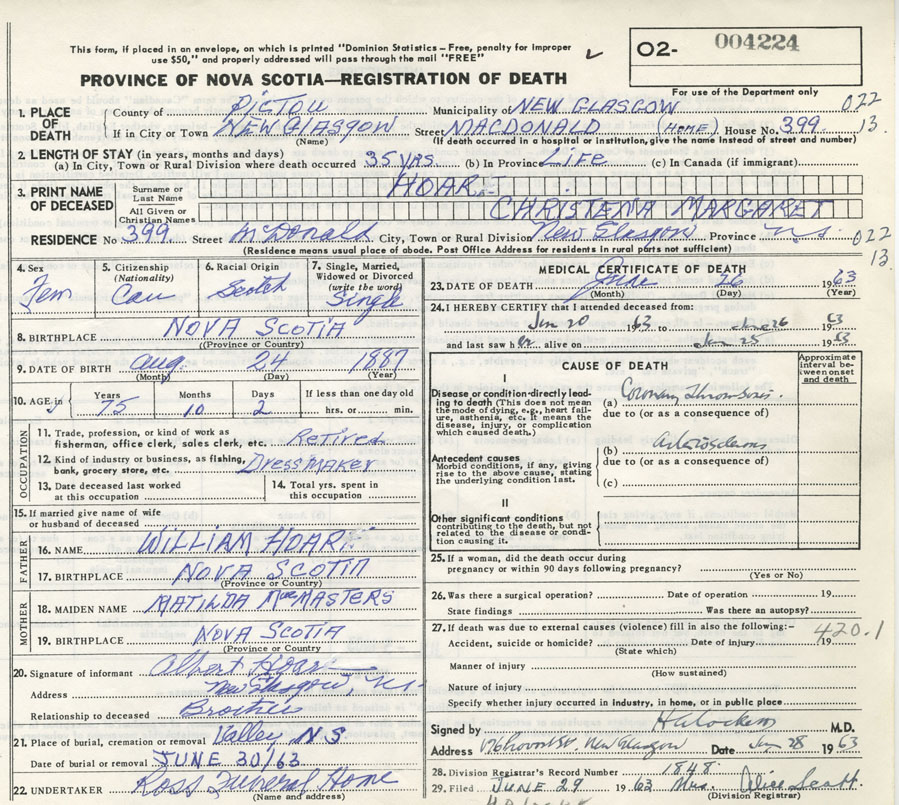 This form, if placed in an envelope, on which is printed "Dominion Statistics – Free, penalty for improper
use $50," and properly addressed will pass through the mail "FREE"
02- 004224
PROVINCE OF NOVA SCOTIA—REGISTRATION OF DEATH
For use of the Department only
1. PLACE OF DEATH
County of PICTOU Municipality of NEW GLASGOW 022
If in City or Town NEW GLASGOW Street MACDONALD (HOME) House No. 399 13.
(Name) (If death occurred in a hospital or institution, give the name instead of street and number)
2. LENGTH OF STAY (in years, months and days)
(a) In City, Town or Rural Division where death occurred 35 YRS (b) In Province LIFE (c) In Canada (if immigrant)
3. PRINT NAME OF DECEASED
Surname or Last Name HOARE
All Given or Christian Names CHRISTENA MARGARET
RESIDENCE No. 399 Street McDonald City, Town or Rural Division New Glasgow Province N.S. 022
(Residence means usual place of abode. Post Office Address for residents in rural parts not sufficient) 13.
4. Sex Fem
5. Citizenship (Nationality) Can
6. Racial Origin Scotch
7. Single, Married, Widowed or Divorced (write the word) Single
8. BIRTHPLACE NOVA SCOTIA
(Province or Country)
9. DATE OF BIRTH Aug. 24 1887
(Month) (Day) (Year)
10. AGE in Years 75 Months 10 Days 2 If less than one day old
hrs. or min.
OCCUPATION
11. Trade, profession, or kind of work as
fisherman, office clerk, sales clerk, etc. Retired
12. Kind of industry or business, as fishing,
bank, grocery store, etc. Dressmaker
13. Date deceased last worked
at this occupation
14. Total yrs. spent in
this occupation
15. If married give name of wife
or husband of deceased
FATHER
16. NAME WILLIAM HOARE
17. BIRTHPLACE NOVA SCOTIA
(Province or Country)
MOTHER
18. MAIDEN NAME MATILDA MacMASTERS
19. BIRTHPLACE NOVA SCOTIA
(Province or Country
20. Signature of informant Albert Hoare
Address New Glasgow, N.S.
Relationship to deceased Brother
21. Place of burial, cremation or removal Valley N.S
Date of burial or removal JUNE 30/63
22. UNDERTAKER Ross Funeral Home
(Name and address)
MEDICAL CERTIFICATE OF DEATH
23. DATE OF DEATH June 26 1963
(Month) (Day) (Year)
24. I HEREBY CERTIFY that I attended deceased from:
Jun 20 1963 to June 26 1963
and last saw her alive on Jun 25 1963
CAUSE OF DEATH
Approximate interval between onset and death
I
Disease or condition directly leading to death (This does not mean
the mode of dying, e.g., heart failure, asthenia, etc. it means the
disease, injury, or complication
which caused death.)
(a) Coronary Thrombosis.
due to (or as a consequence of)
Antecedent causes
Morbid conditions, if any, giving
rise to the above cause, stating
the underlying condition last.
(b)
due to (or as a consequence of)
(c)
II
Other significant conditions
contributing to the death, but not
related to the disease or condition causing it.
25. If a woman, did the death occur during
pregnancy or within 90 days following pregnancy?
(Yes or No)
26. Was there a surgical operation? Date of operation 19
State findings Was there an autopsy?
27. If death was due to external causes (violence) fill in also the following:– 420.1
Accident, suicide or homicide? Date of injury 19
(State which)
Manner of injury
(How sustained)
Nature of injury
Specify whether injury occurred in industry, in home, or in public place
Signed by M.D.
Address Provost St, New Glasgow Date Jun 28 1963
28. Division Registrar's Record Number 1848
29. Filed JUNE 29 1963 Mrs. Alice Scott
(Division Registrar)